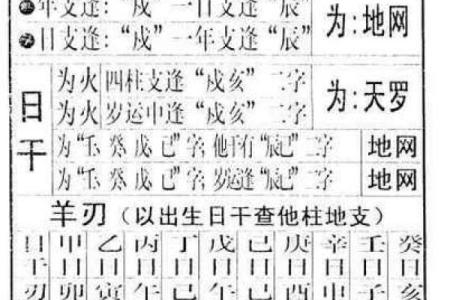 年支逢：“戌” 一日支逢“辰”
日支逢：“戌” 一年支逢“辰”
为:地网
日干
为火 四柱支逢“戌亥” 二字
为火 岁运中逢“戌亥” 二字
为:天罗
为“壬、癸、戊、已”字，他干有“辰巳”二字 地网
为“壬、癸、戊、已”字，岁运逢“辰巳”二字 地网
羊刃（以出生日干查他柱地支）
日干 甲日 乙日 丙日 丁日 戊日 己日 庚日 辛日 壬日 癸日
刃 卯 寅 午 巳 午 巳 酉 申 子 亥